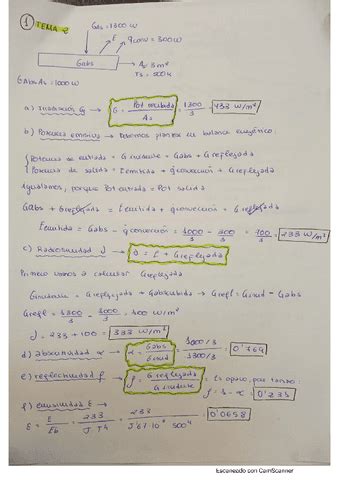 ① TEMA 2
Gas = 1300 W
E qconv = 300 W
Gabs
As = 3m²
Ts = 500k
GAbsAs = 1000 W
a) Irradiación G → G = Pot incidida / As = 1300/3 = 433 W/m²
b) Potencia emisiva → Debemos plantear un balance energético:
Potencia de entrada = G incidente = Gabs + Greflejada
Potencia de salida = Eemitida + qconvección + Greflejada
Igualamos, porque Pot entrada = Pot salida
Gabs + Greflejada = Eemitida + qconvección + Greflejada
Eemitida = Gabs - qconvección = 1000/3 - 300/3 = 700/3 = 233 W/m²
c) Radiosidad J → J = E + Greflejada
Primero vamos a calcular Greflejada
Gincidente = Greflejada + Gabsorbida → Grefl = Gincid - Gabs
Grefl = 1300/3 - 1000/3 = 100 W/m²
J = 233 + 100 = 333 W/m²
d) absortividad α → α = Gabs/Gincid = 1000/3 / 1300/3 = 0'769
e) reflectividad ρ → ρ = Greflejada / Gincidente = Es opaco, por tanto: ρ = 1 - α = 0'235
f) emisividad E →
E = E/Eb = 233/σ·T⁴ = 233 / 5'67·10⁻⁸·500⁴ = 0'0658
Escaneado con CamScanner